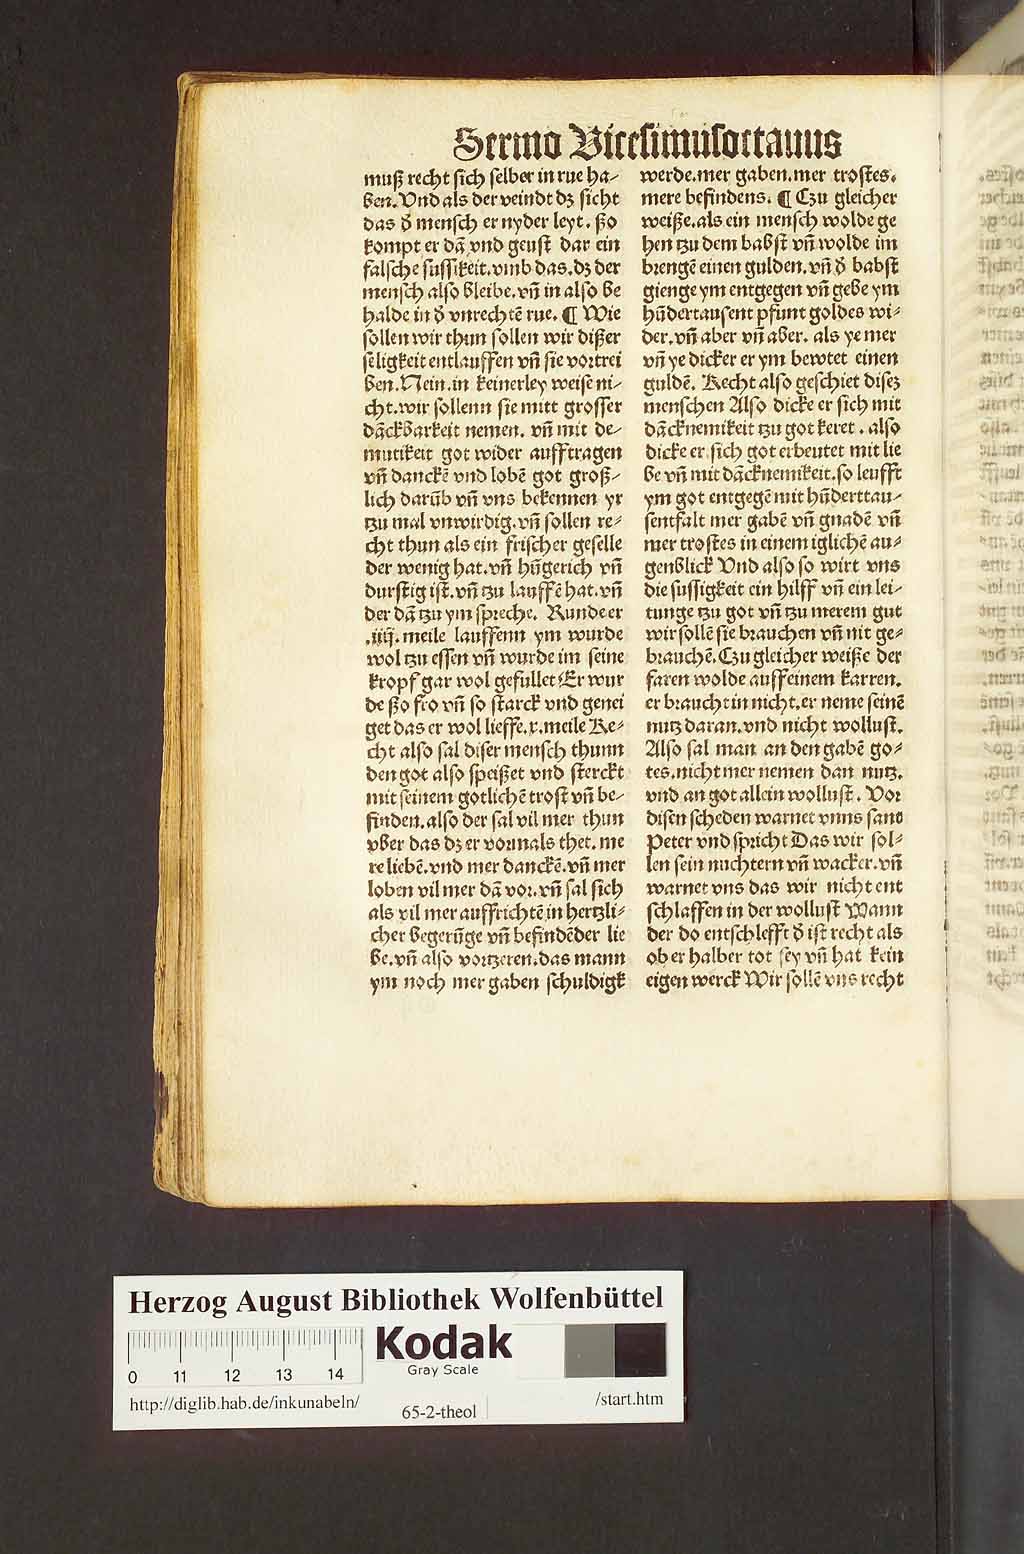 Sermo Vicesimusoctauus
muß recht sich selber in rue ha⸗
ben. Vnd als der veindt dz sicht
das d̄ mensch er nyder leyt. ßo
kompt er dā vnd geust dar ein
falsche sussikeit. vmb das. dz der
mensch also bleibe. vn̄ in also be
halde in d̄ vnrechtē rue. ¶ Wie
sollen wir thun sollen wir dißer
seligkeit entlauffen vn̄ sie vortrei
ben. Nein. in keinerley weise ni⸗
cht. wir sollenn sie mitt grosser
dāckbarkeit nemen. vn̄ mit de⸗
mutikeit got wider aufftragen
vn̄ danckē vnd lobē got groß⸗
lich darūb vn̄ vns bekennen yr
tzu mal vnwirdig. vn̄ sollen re⸗
cht thun als ein frischer geselle
der wenig hat. vn̄ hūgerich vn̄
durstig ist. vn̄ tzu lauffē hat. vn̄
der dā tzu ym spreche. Kunde er
.iiij. meile lauffenn ym wurde
wol tzu essen vn̄ wurde im seine
kropf gar wol gefullet Er wur
de ßo fro vn̄ so starck vnd genei
get das er wol lieffe. x. meile Re⸗
cht also sal diser mensch thunn
den got also speißet vnd sterckt
mit seinem gotlichē trost vn̄ be⸗
finden. also der sal vil mer thun
vber das dz er vormals thet. me
re liebē. vnd mer danckē. vn̄ mer
loben vil mer dā vor. vn̄ sal sich
als vil mer auffrichtē in hertzli⸗
cher begerūge vn̄ befindēder lie
be. vn̄ also vortzeren. das mann
ym noch mer gaben schuldigk
werde. mer gaben. mer trostes.
mere befindens. ¶ Czu gleicher
weiße. als ein mensch wolde ge
hen tzu dem babst vn̄ wolde im
brengē einen gulden. vn̄ d̄ babst
gienge ym entgegen vn̄ gebe ym
hūdertausent pfunt goldes wi⸗
der. vn̄ aber vn̄ aber. als ye mer
vn̄ ye dicker er ym bewtet einen
guldē. Recht also geschiet disez
menschen Also dicke er sich mit
dācknemikeit tzu got keret. also
dicke er sich got erbeutet mit lie
be vn̄ mit dācknemikeit. so leufft
ym got entgegē mit hūderttau⸗
sentfalt mer gabē vn̄ gnadē vn̄
mer trostes in einem iglichē au⸗
genblick Vnd also so wirt vns
die sussigkeit ein hilff vn̄ ein lei⸗
tunge tzu got vn̄ tzu merem gut
wir sollē sie brauchen vn̄ nit ge⸗
brauchē. Czu gleicher weiße der
faren wolde auff einem karren.
er braucht in nicht. er neme seinē
nutz daran. vnd nicht wollust.
Also sal man an den gabē go⸗
tes. nicht mer nemen dan nutz.
vnd an got allein wollust. Vor
disen scheden warnet vnns sant
Peter vnd spricht Das wir sol⸗
len sein nuchtern vn̄ wacker. vn̄
warnet vns das wir nicht ent
schlaffen in der wollust Wann
der do entschlefft d̄ ist recht als
ob er halber tot sey vn̄ hat kein
eigen werck Wir sollē vns recht
Herzog August Bibliothek Wolfenbüttel
Kodak
Gray Scale
0 11 12 13 14
http://diglib.hab.de/inkunabeln/
65-2-theol
/start.htm